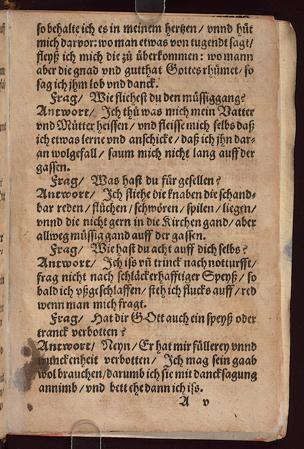 so behalte ich es in meinem hertzen / vnnd hüt
mich darvor: wo man etwas von tugent sagt /
fleyß ich mich die zů überkommen: wo mann
aber die gnad vnd gutthat Gottes rhümet / so
sag ich jhm lob vnd danck.
Frag / Wie fliehest du den müssiggang?
Antwort / Ich thů was mich mein Vatter
vnd Mütter heissen / vnd fleisse mich selbs daß
ich etwas lerne vnd anschicke / daß ich jhn dar-
an wolgefall / saum mich nicht lang auff der
gassen.
Frag / Was hast du für gesellen?
Antwort / Ich fliehe die knaben die schand-
bar reden / flüchen / schwören / spilen / liegen /
vnnd die nicht gern in die Kirchen gand / aber
allweg müssig gand auff der gassen.
Frag / Wie hast du acht auff dich selbs?
Antwort / Ich iß vñ trinck nach notturfft /
frag nicht nach schläckerhafftiger Speyß / so
bald ich vßgeschlaffen / steh ich flucks auff / red
wenn man mich fragt.
Frag / Hat dir GOtt auch ein speyß oder
tranck verbotten?
Antwort / Neyn / Er hat mir füllerey vnnd
trunckenheit verbotten / Ich mag sein gaab
wol brauchen / darumb ich sie mit dancksagung
annimb / vnd bett ehe dann ich iss.
A v